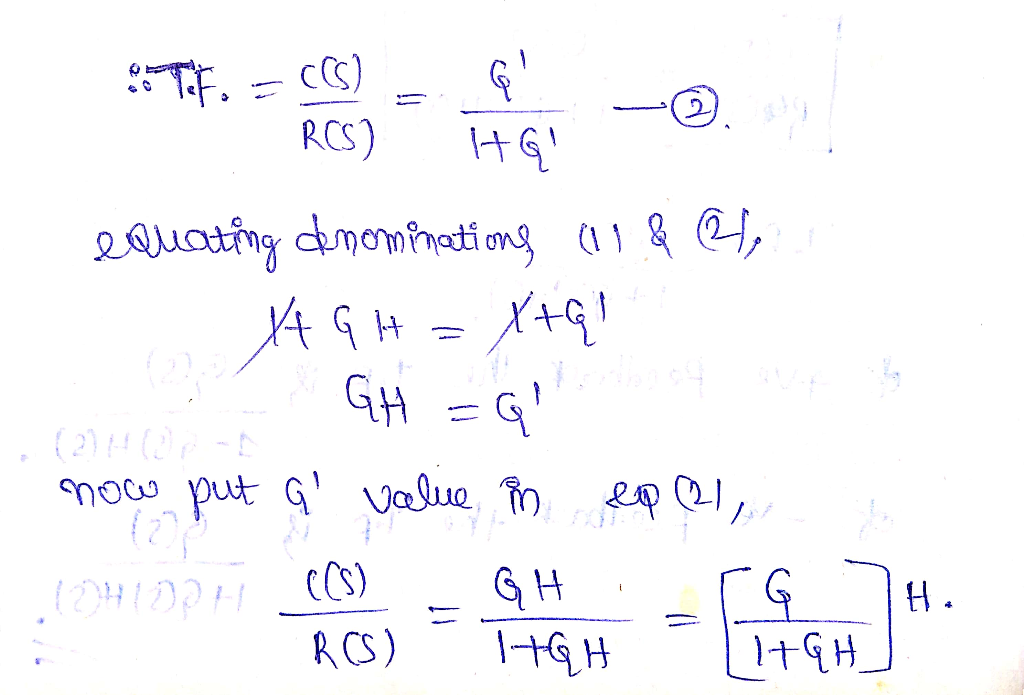 ∴ T.F. = C(S)/R(S) = G'/1+G' — ②.
equating denominations (1) & (2),
1+GH = 1+G'
GH = G'
now put G' value in eq (2),
C(S)/R(S) = GH/1+GH = [G/1+GH] H.